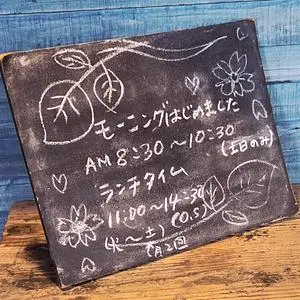 モーニングはじめました
AM 8:30〜10:30
(土日のみ)
ランチタイム
11:00〜14:30
(O.S)
(火〜土)
(月2回)